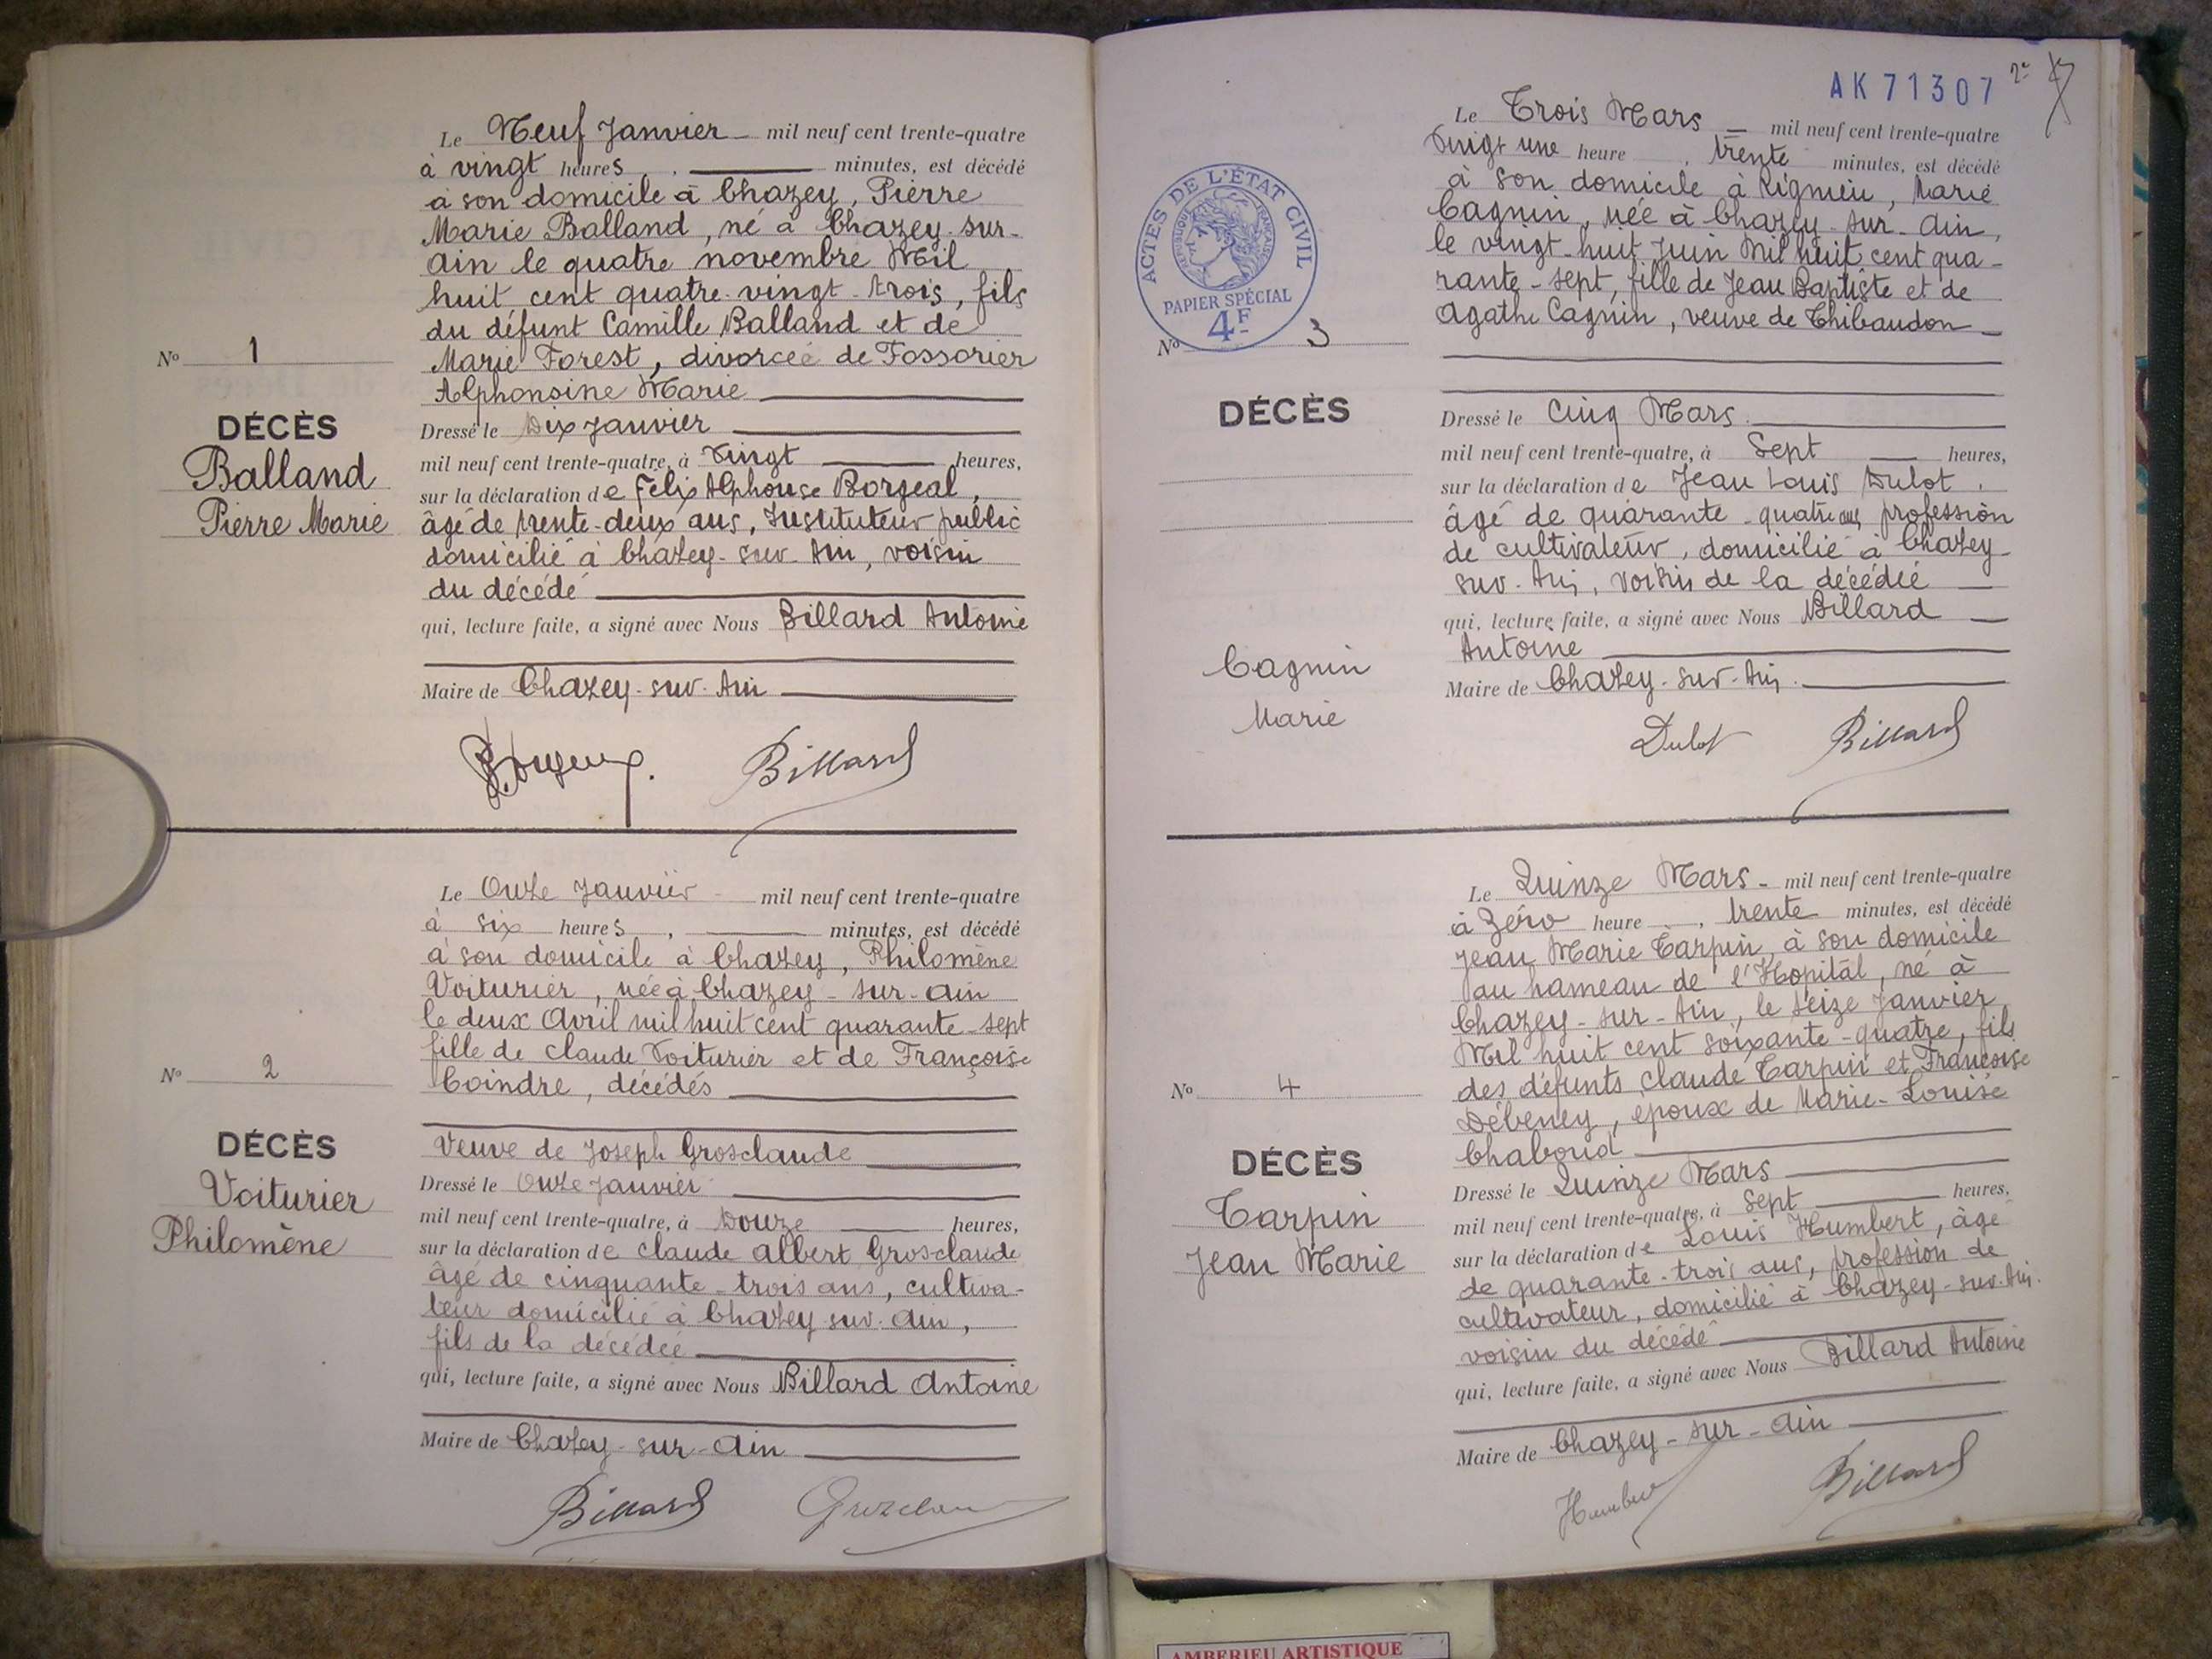 Le Neuf Janvier mil neuf cent trente-quatre
à vingt heures, minutes, est décédé
à son domicile à Chazey, Pierre
Marie Balland, né à Chazey-sur-
Ain le quatre novembre Mil
huit cent quatre-vingt-trois, fils
du défunt Camille Balland et de
Marie Forest, divorcée de Fossorier
Alphonsine Marie
Nº 1
DÉCÈS
Balland
Pierre Marie
Dressé le Dix Janvier
mil neuf cent trente-quatre, à Vingt heures,
sur la déclaration de Félix Alphonse Borgeal,
âgé de trente-deux ans, Instituteur public
domicilié à Chazey-sur-Ain, voisin
du décédé
qui, lecture faite, a signé avec Nous Billard Antoine
Maire de Chazey-sur-Ain
Billard
Le Onze Janvier mil neuf cent trente-quatre
à six heures, minutes, est décédé
à son domicile à Chazey, Philomène
Voiturier, née à Chazey-sur-Ain
le deux Avril mil huit cent quarante-sept
fille de Claude Voiturier et de Françoise
Coindre, décédés
Veuve de Joseph Grosclaude
Nº 2
DÉCÈS
Voiturier
Philomène
Dressé le Onze Janvier
mil neuf cent trente-quatre, à Douze heures,
sur la déclaration de Claude Albert Grosclaude
âgé de cinquante-trois ans, cultiva-
teur domicilié à Chazey-sur-Ain,
fils de la décédée
qui, lecture faite, a signé avec Nous Billard Antoine
Maire de Chazey-sur-Ain
Billard
AK 71307
Le Trois Mars mil neuf cent trente-quatre
Vingt une heure, trente minutes, est décédé
à son domicile à Rignieu, Marie
Cagnin, née à Chazey-sur-Ain,
le vingt-huit Juin Mil huit cent qua-
rante-sept, fille de Jean Baptiste et de
Agathe Cagnin, veuve de Thibaudon
ACTES DE L'ÉTAT CIVIL
RÉPUBLIQUE FRANÇAISE
PAPIER SPÉCIAL
4F
Nº 3
DÉCÈS
Cagnin
Marie
Dressé le Cinq Mars
mil neuf cent trente-quatre, à Sept heures,
sur la déclaration de Jean Louis Dulot,
âgé de quarante-quatre ans, profession
de cultivateur, domicilié à Chazey-
sur-Ain, voisin de la décédée
qui, lecture faite, a signé avec Nous Billard
Antoine
Maire de Chazey-sur-Ain
Dulot Billard
Le Quinze Mars mil neuf cent trente-quatre
à Zéro heure, trente minutes, est décédé
Jean Marie Tarpin, à son domicile
au hameau de l'Hopital, né à
Chazey-sur-Ain, le seize Janvier
Mil huit cent soixante-quatre, fils
des défunts Claude Tarpin et Françoise
Débeney, époux de Marie-Louise
Chaboud
Nº 4
DÉCÈS
Tarpin
Jean Marie
Dressé le Quinze Mars
mil neuf cent trente-quatre, à Sept heures,
sur la déclaration de Louis Humbert, âgé
de quarante-trois ans, profession de
cultivateur, domicilié à Chazey-sur-Ain
voisin du décédé
qui, lecture faite, a signé avec Nous Billard Antoine
Maire de Chazey-sur-Ain
Humbert Billard
AMBERIEU ARTISTIQUE